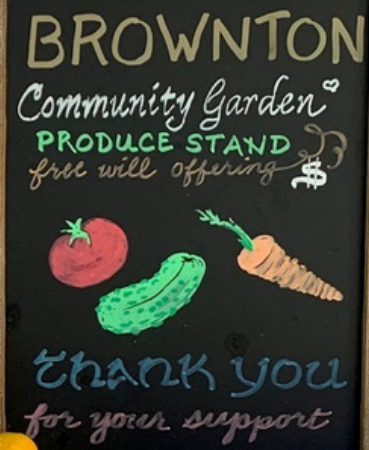 BROWNTON
Community Garden
PRODUCE STAND
free will offering $
THANK YOU
for your support